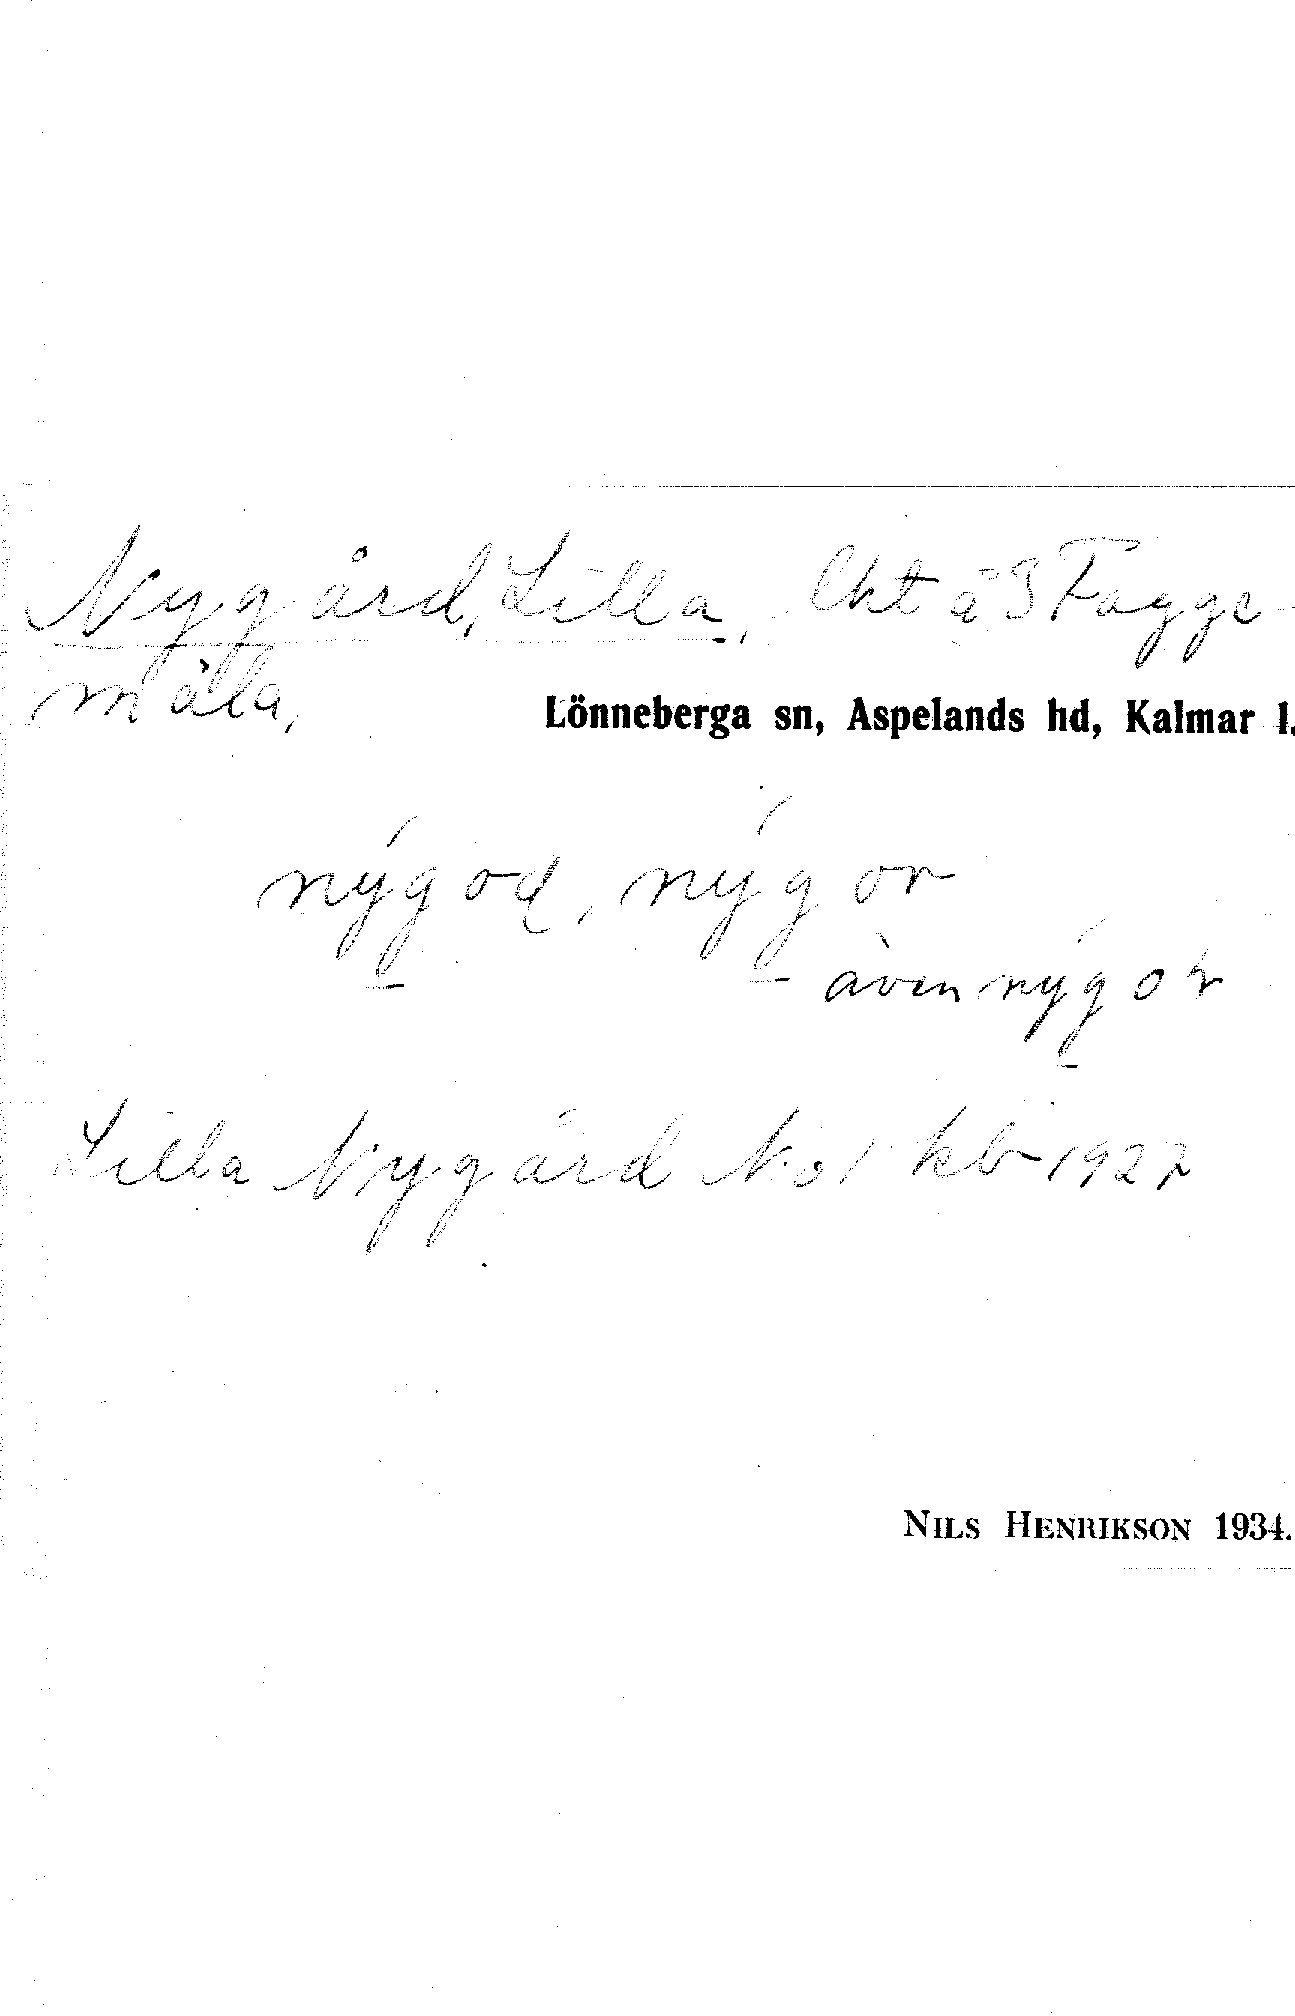 Nygård, Lilla, lht å 3 Fagge-
måla,
Lönneberga sn, Aspelands hd, Kalmar l.
nýgoḍ, nýgor
även nýgor
Lilla Nygård No 1 kb 1927
NILS HENRIKSON 1934.